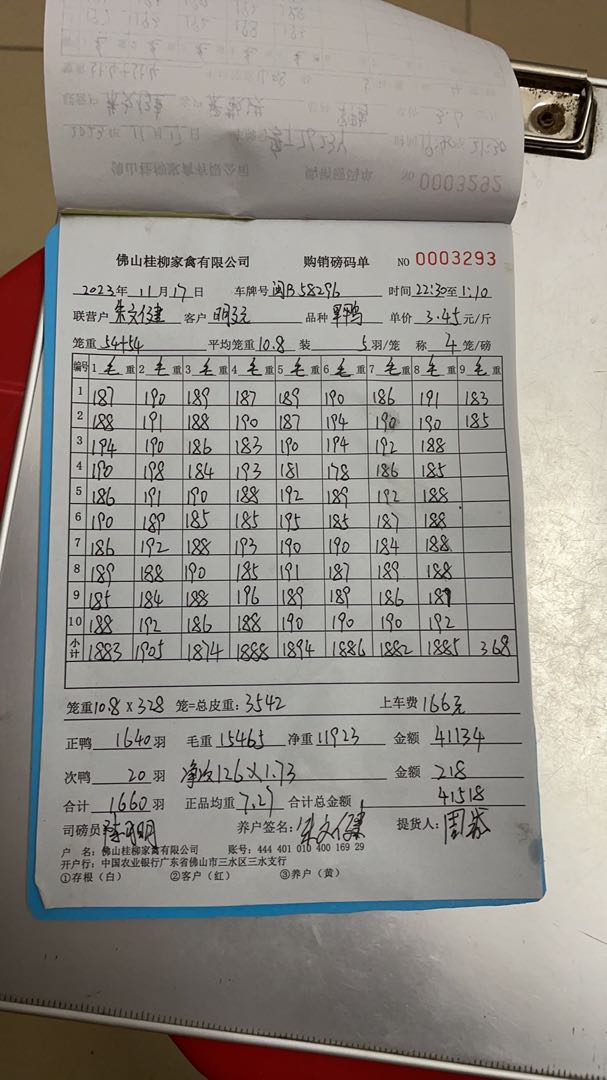 佛山桂柳家禽有限公司 购销磅码单 NO 0003293
2023年 11月 17日 车牌号 闽B58296 时间 22:30至1:10
联营户 朱文健 客户 明记 品种 旱鸭 单价 3.45元/斤
笼重 54+54 平均笼重 10.8 装 5 羽/笼 称 4 笼/磅
编号 1 毛重 2 毛重 3 毛重 4 毛重 5 毛重 6 毛重 7 毛重 8 毛重 9 毛重
1 187 190 189 187 189 190 186 191 183
2 188 191 188 190 187 194 190 190 185
3 194 190 186 183 190 194 192 188
4 190 198 184 193 181 178 186 185
5 186 191 190 188 192 189 192 188
6 190 189 185 185 195 185 187 188
7 186 192 188 193 190 190 184 188
8 189 188 190 185 191 187 189 188
9 185 184 188 196 189 189 186 189
10 188 192 186 188 190 190 190 192
小计 1883 1905 1874 1888 1894 1886 1882 1885 368
笼重10.8 X 328 笼=总皮重: 3542 上车费 166元
正鸭 1640 羽 毛重 15465 净重 11923 金额 41134
次鸭 20 羽 净重126X1.73 金额 218
合计 1660 羽 正品均重 7.27 合计总金额 41518
司磅员 养户签名: 朱文健 提货人:
户 名: 佛山桂柳家禽有限公司 账号: 444 401 010 400 169 29
开户行: 中国农业银行广东省佛山市三水区三水支行
①存根(白) ②客户(红) ③养户(黄)